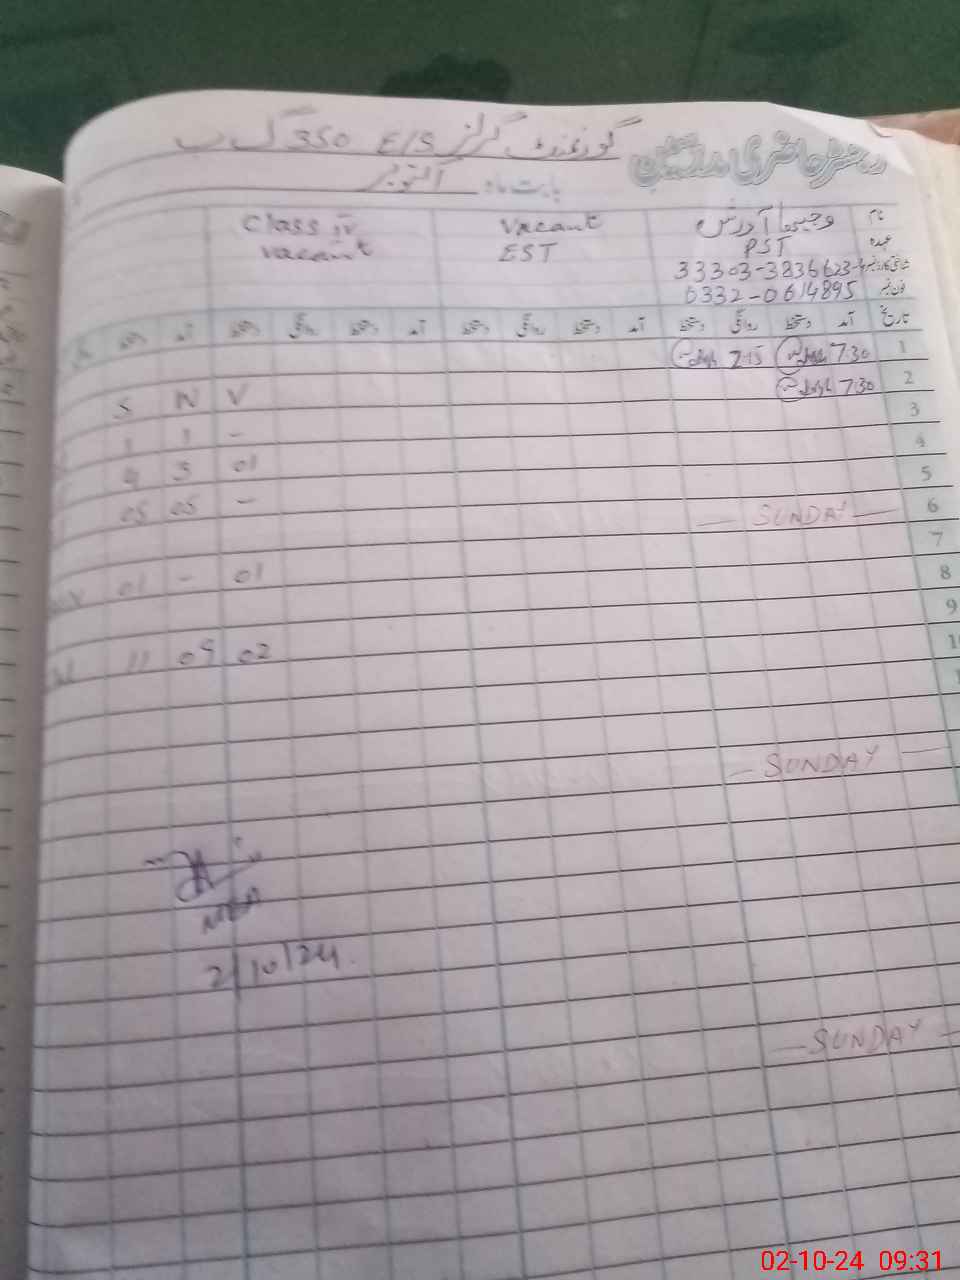 رجسٹر حاضری مدرسین گورنمنٹ گرلز E/S 350 گ ب
بابت ماہ اکتوبر
نام وجیہا آدرش Vacant Class iv
عہدہ PST EST vacant
شناختی کارڈ نمبر 33303-3836623-
فون نمبر 0332-0614895
تاریخ آمد دستخط روانگی دستخط آمد دستخط روانگی دستخط آمد دستخط روانگی دستخط آمد
1 7:30 2:15
2 7:30
S N V
3
1 1 -
4
4 3 01
5
05 05 -
6 — SUNDAY —
7
8
01 - 01
9
10
11 09 02
— SUNDAY —
MEA
2/10/24.
— SUNDAY —
02-10-24 09:31